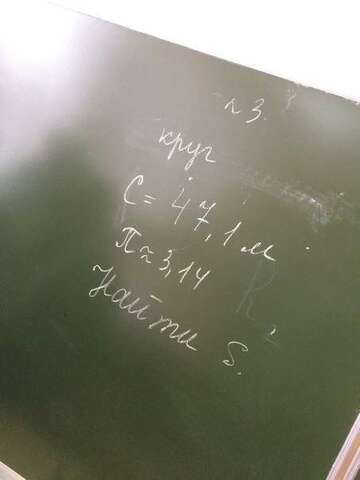 № 3.
круг
C = 47,1 м
π ≈ 3,14
Найти S.